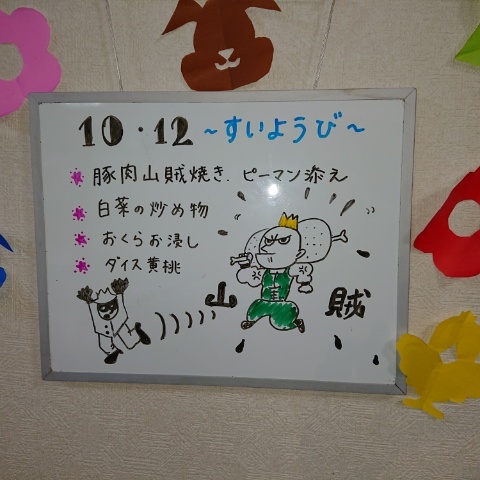 10・12 ~すいようび~
豚肉山賊焼き、ピーマン添え
白菜の炒め物
おくらお浸し
ダイス黄桃
山 賊